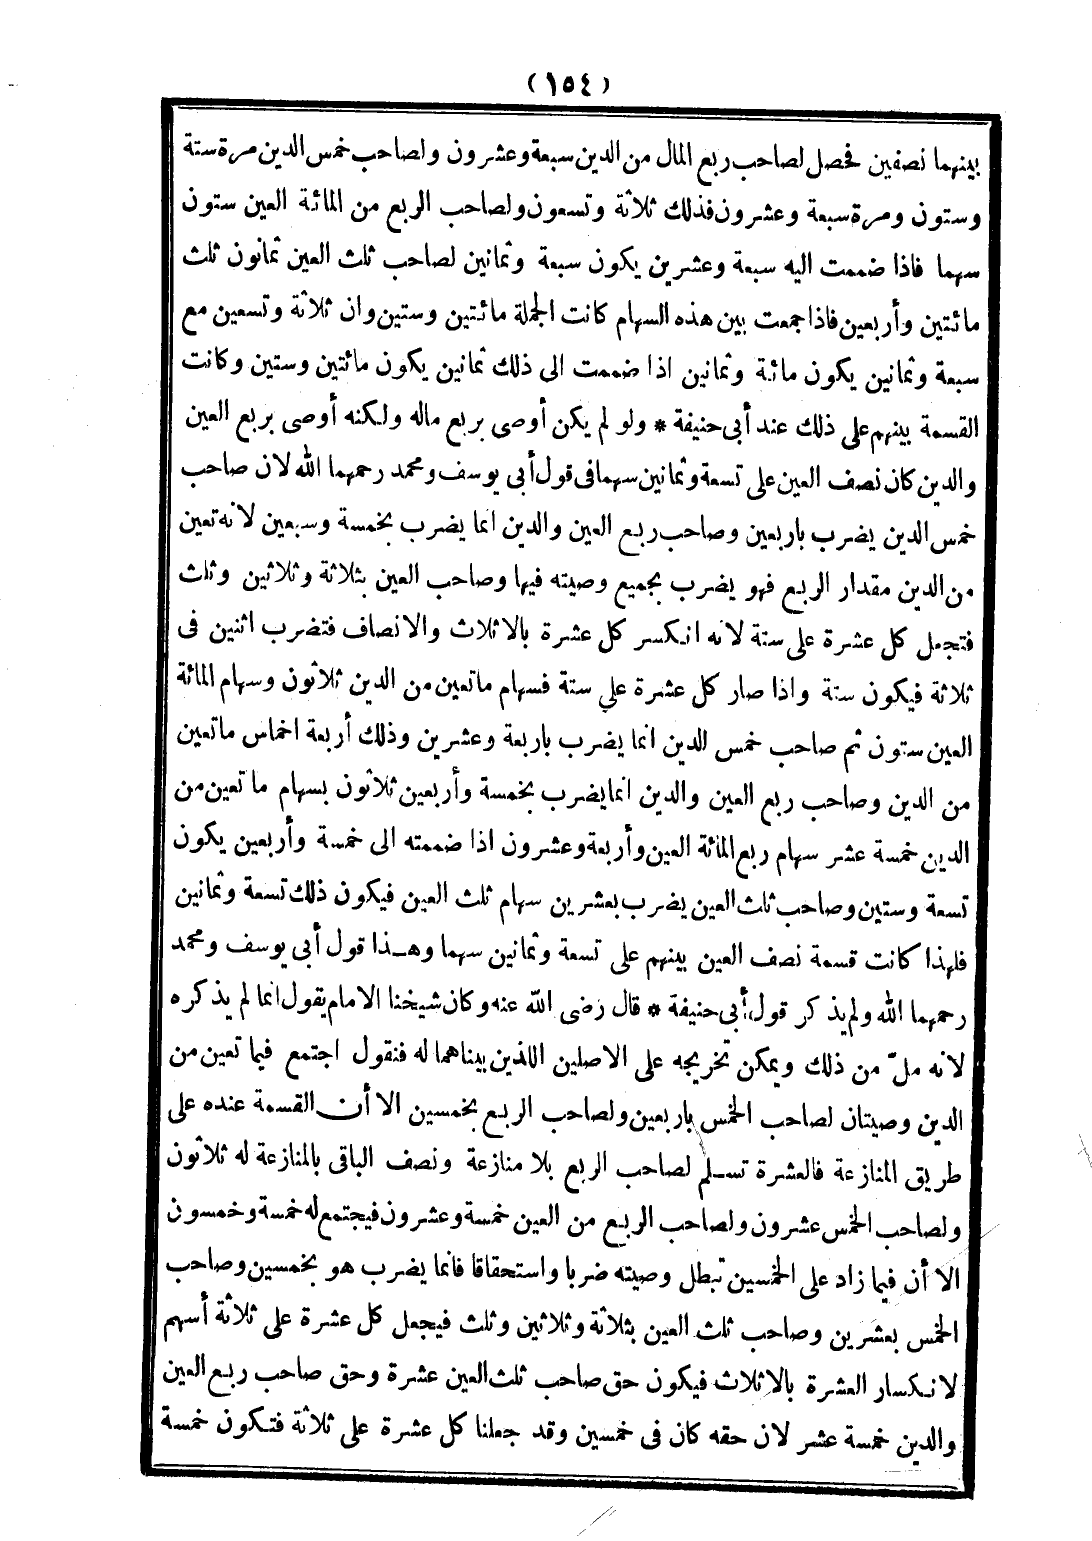 (١٥٤)
بينهما نصفين فحصل لصاحب ربع المال من الدين سبعة وعشرون ولصاحب خمس الدين مرة ستة
وستون ومرة سبعة وعشرون فذلك ثلاثة وتسعون ولصاحب الربع من المائة العين ستون
سهما فاذا ضممت اليه سبعة وعشرين يكون سبعة وثمانين لصاحب ثلث العين ثمانون ثلث
مائتين وأربعين فاذا جمعت بين هذه السهام كانت الجملة مائتين وستين وان ثلاثة وتسعين مع
سبعة وثمانين يكون مائة وثمانين اذا ضممت الى ذلك ثمانين يكون مائتين وستين وكانت
القسمة بينهم على ذلك عند أبى حنيفة * ولو لم يكن أوصى بربع ماله ولكنه أوصى بربع العين
والدين كان نصف العين على تسعة وثمانين سهما فى قول أبى يوسف ومحمد رحمهما الله لان صاحب
خمس الدين يضرب باربعين وصاحب ربع العين والدين انما يضرب بخمسة وسبعين لانه تعين
من الدين مقدار الربع فهو يضرب بجميع وصيته فيها وصاحب العين بثلاثة وثلاثين وثلث
فتجعل كل عشرة على ستة لانه انكسر كل عشرة بالاثلاث والانصاف فتضرب اثنين فى
ثلاثة فيكون ستة واذا صار كل عشرة على ستة فسهام ما تعين من الدين ثلاثون وسهام المائة
العين ستون ثم صاحب خمس الدين انما يضرب باربعة وعشرين وذلك أربعة اخماس ما تعين
من الدين وصاحب ربع العين والدين انما يضرب بخمسة وأربعين ثلاثون بسهام ما تعين من
الدين خمسة عشر سهام ربع المائة العين وأربعة وعشرون اذا ضممته الى خمسة وأربعين يكون
تسعة وستين وصاحب ثلث العين يضرب بعشرين سهام ثلث العين فيكون ذلك تسعة وثمانين
فلهذا كانت قسمة نصف العين بينهم على تسعة وثمانين سهما وهذا قول أبى يوسف ومحمد
رحمهما الله ولم يذكر قول أبى حنيفة * قال رضى الله عنه وكان شيخنا الامام يقول انما لم يذكره
لانه ملّ من ذلك ويمكن تخريجه على الاصلين اللذين بيناهما له فنقول اجتمع فيما تعين من
الدين وصيتان لصاحب الخمس باربعين ولصاحب الربع بخمسين الا أن القسمة عنده على
طريق المنازعة فالعشرة تسلم لصاحب الربع بلا منازعة ونصف الباقى بالمنازعة له ثلاثون
ولصاحب الخمس عشرون ولصاحب الربع من العين خمسة وعشرون فيجتمع له خمسة وخمسون
الا أن فيما زاد على الخمسين تبطل وصيته ضربا واستحقاقا فانما يضرب هو بخمسين وصاحب
الخمس بعشرين وصاحب ثلث العين بثلاثة وثلاثين وثلث فيجعل كل عشرة على ثلاثة أسهم
لانكسار العشرة بالاثلاث فيكون حق صاحب ثلث العين عشرة وحق صاحب ربع العين
والدين خمسة عشر لان حقه كان فى خمسين وقد جعلنا كل عشرة على ثلاثة فتكون خمسة